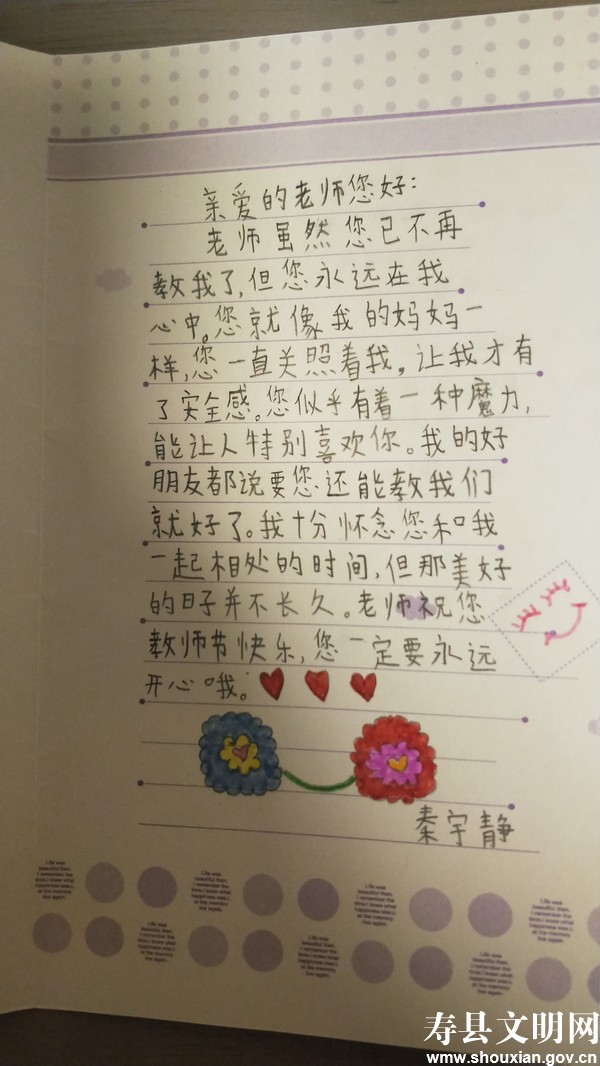 亲爱的老师您好：
老师虽然您已不再
教我了，但您永远在我
心中。您就像我的妈妈一
样，您一直关照着我。让我才有
了安全感。您似乎有着一种魔力，
能让人特别喜欢你。我的好
朋友都说要您还能教我们
就好了。我十分怀念您和我
一起相处的时间，但那美好
的日子并不长久。老师祝您
教师节快乐，您一定要永远
开心哦。
秦宇静
Life was
beautiful then.
I remember the
time I knew what
happiness was,
the memory
live again.
寿县文明网
www.shouxian.gov.cn